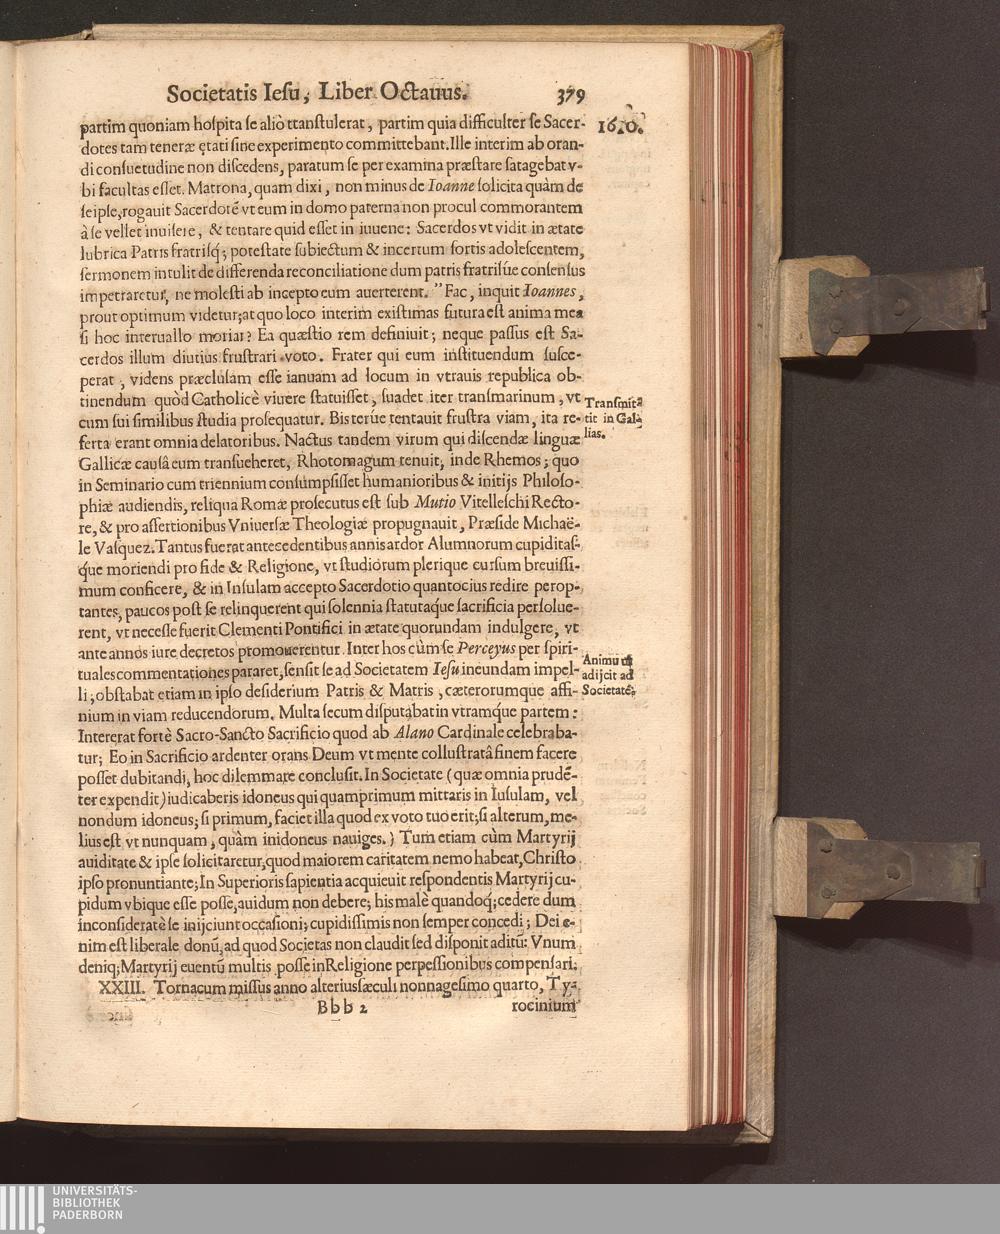 Societatis Iesu, Liber Octauus. 379
1610.
partim quoniam hospita se aliò ttanstulerat, partim quia difficulter se Sacer-
dotes tam teneræ ętati sine experimento committebant. Ille interim ab oran-
di consuetudine non discedens, paratum se per examina præstare satagebat v-
bi facultas esset. Matrona, quam dixi, non minus de Ioanne solicita quàm de
seipse, rogauit Sacerdotẽ vt eum in domo paterna non procul commorantem
à se vellet inuisere, & tentare quid esset in iuuene: Sacerdos vt vidit in ætate
lubrica Patris fratrisq́; potestate subiectum & incertum sortis adolescentem,
sermonem intulit de differenda reconciliatione dum patris fratrisúe consensus
impetraretur, ne molesti ab incepto eum auerterent. "Fac, inquit Ioannes,
prout optimum videtur; at quo loco interim existimas futura est anima mea
si hoc interuallo moriar? Ea quæstio rem definiuit; neque passus est Sa-
cerdos illum diutius frustrari voto. Frater qui eum instituendum susce-
perat, videns præclusam esse ianuam ad locum in vtrauis republica ob-
tinendum quòd Catholicè viuere statuisset, suadet iter transmarinum, vt
cum sui similibus studia prosequatur. Bis terúe tentauit frustra viam, ita re-
ferta erant omnia delatoribus. Nactus tandem virum qui discendæ linguæ
Transmit-
tit in Gal-
lias.
Gallicæ causâ eum transueheret, Rhotomagum tenuit, inde Rhemos; quo
in Seminario cum triennium consumpsisset humanioribus & initijs Philoso-
phiæ audiendis, reliqua Romæ prosecutus est sub Mutio Vitelleschi Recto-
re, & pro assertionibus Vniuersæ Theologiæ propugnauit, Præside Michaë-
le Vasquez. Tantus fuerat antecedentibus annis ardor Alumnorum cupiditas-
q́ue moriendi pro fide & Religione, vt studiorum plerique cursum breuissi-
mum conficere, & in Insulam accepto Sacerdotio quantocius redire perop-
tantes, paucos post se relinquerent qui solennia statutaq́ue sacrificia persolue-
rent, vt necesse fuerit Clementi Pontifici in ætate quorundam indulgere, vt
ante annos iure decretos promouerentur. Inter hos cùm se Perceyus per spiri-
tuales commentationes pararet, sensit se ad Societatem Iesu ineundam impel-
li; obstabat etiam in ipso desiderium Patris & Matris, cæterorumque affi-
Animum
adijcit ad
Societatẽ.
nium in viam reducendorum. Multa secum disputabat in vtramq́ue partem:
Intererat fortè Sacro-Sancto Sacrificio quod ab Alano Cardinale celebraba-
tur; Eo in Sacrificio ardenter orans Deum vt mente collustratâ finem facere
posset dubitandi, hoc dilemmate conclusit. In Societate (quæ omnia prudẽ-
ter expendit) iudicaberis idoneus qui quamprimum mittaris in Iusulam, vel
nondum idoneus; si primum, faciet illa quod ex voto tuo erit; si alterum, me-
lius est vt nunquam, quàm inidoneus nauiges.) Tum etiam cùm Martyrij
auiditate & ipse solicitaretur, quod maiorem caritatem nemo habeat, Christo
ipso pronuntiante; In Superioris sapientia acquieuit respondentis Martyrij cu-
pidum vbique esse posse, auidum non debere; his malè quandoq́; cedere dum
inconsideratè se inijciunt occasioni; cupidissimis non semper concedi; Dei e-
nim est liberale donũ, ad quod Societas non claudit sed disponit aditũ: Vnum
deniq; Martyrij euentũ multis posse in Religione perpessionibus compensari.
XXIII. Tornacum missus anno alterius sæculi nonnagesimo quarto, Ty-
Bbb 2 rocinium
UNIVERSITÄTS-
BIBLIOTHEK
PADERBORN